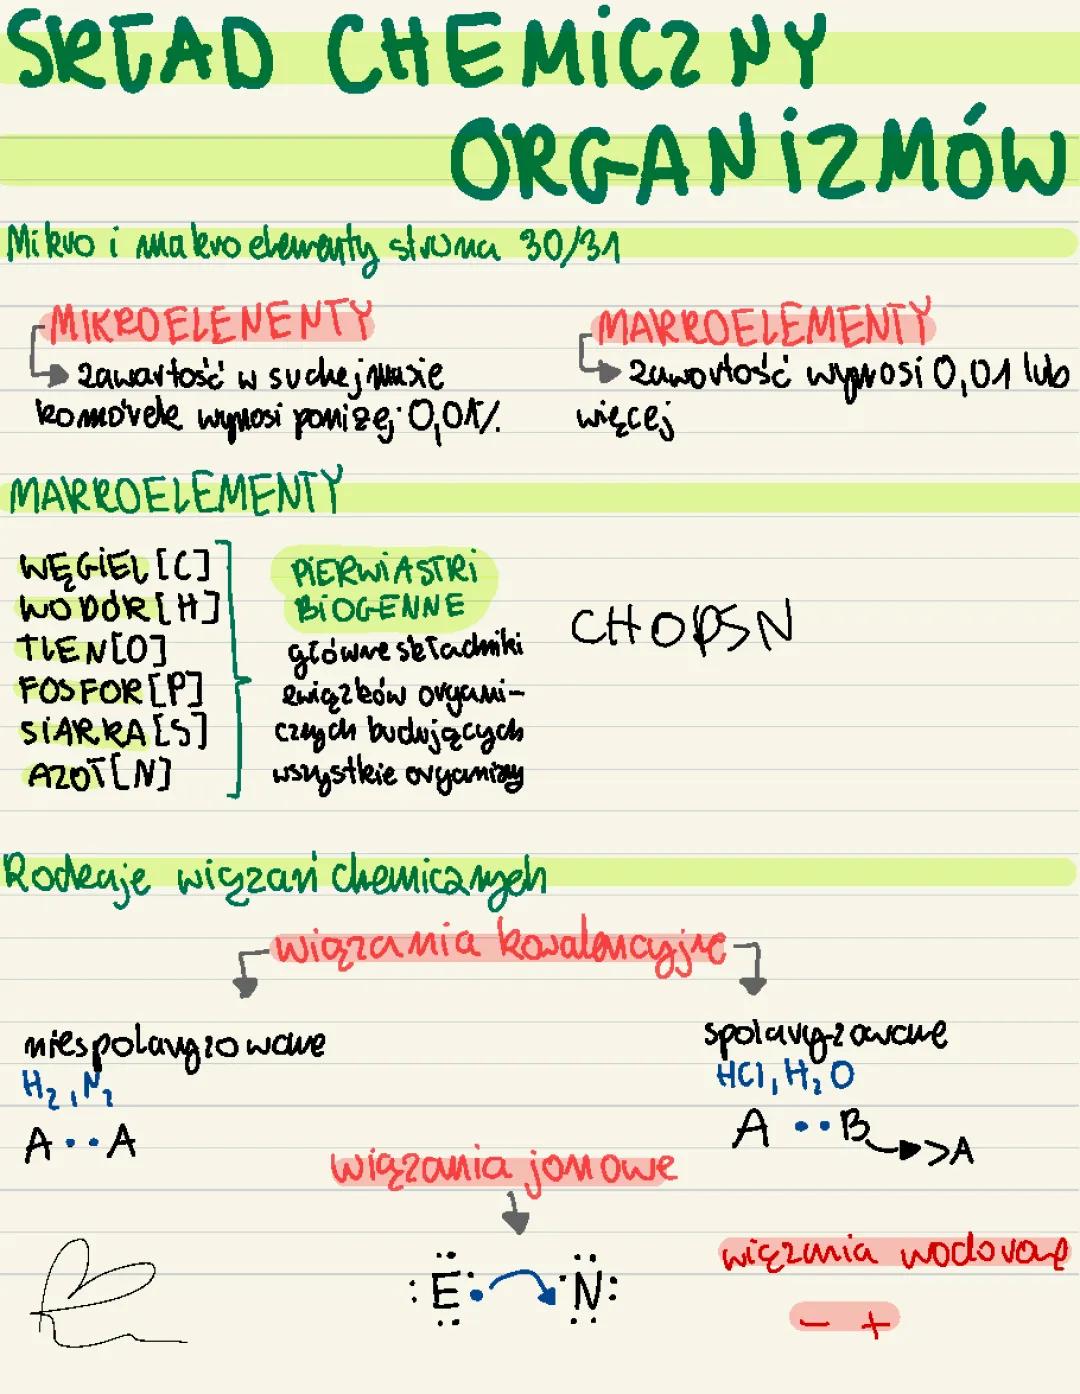 SKŁAD CHEMICZNY
ORGANIZMÓW
Mikro i makroelementy strona 30/31
MIKROELENENTY
zawartość w suchej masie
komórek wynosi poniżej 0,01%.
MAKROELEMENTY
zawartość wynosi 0,01 lub
więcej
MAKROELEMENTY
WĘGIEL [C]
WODÓR [H]
TLEN [O]
FOSFOR [P]
SIARKA [S]
AZOT [N]
PIERWIASTKI
BIOGENNE
główne składniki
związków organi-
cznych budujących
wszystkie organizmy
CHOPSN
Rodzaje wiązań chemicznych
wiązania kowalencyjne
niespolaryzowane
H₂, N₂
A··A
spolaryzowane
HCl, H₂O
A ··B >A
wiązania jonowe
:E· ·N:
wiązania wodorowe
- +